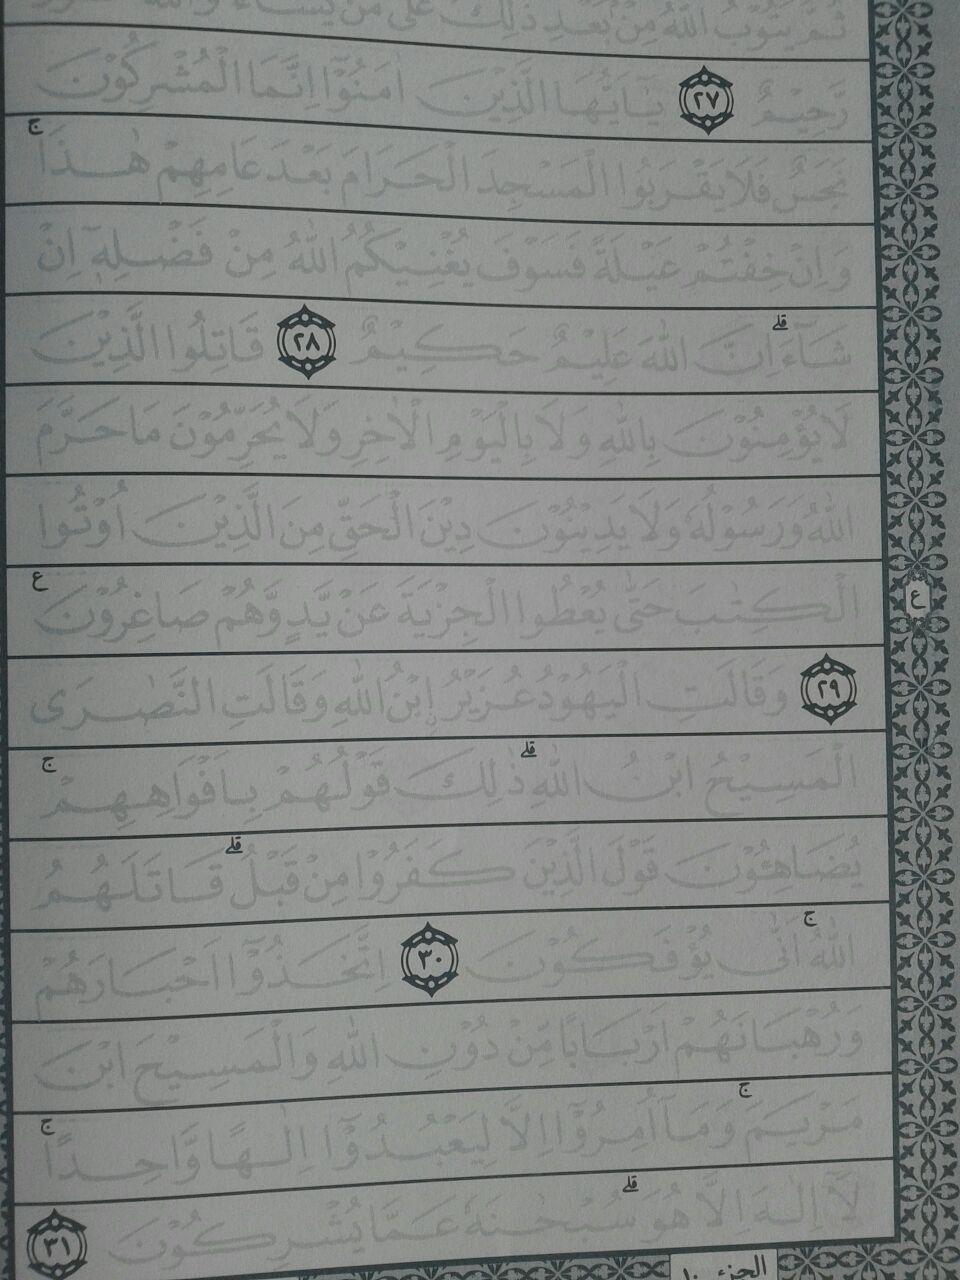 ثُمَّ يَتُوْبُ اللّٰهُ مِنْۢ بَعْدِ ذٰلِكَ عَلٰى مَنْ يَّشَاۤءُۗ وَاللّٰهُ غَفُوْرٌ
رَّحِيْمٌ ٢٧ يٰٓاَيُّهَا الَّذِيْنَ اٰمَنُوْٓا اِنَّمَا الْمُشْرِكُوْنَ
نَجَسٌ فَلَا يَقْرَبُوا الْمَسْجِدَ الْحَرَامَ بَعْدَ عَامِهِمْ هٰذَاۚ
وَاِنْ خِفْتُمْ عَيْلَةً فَسَوْفَ يُغْنِيْكُمُ اللّٰهُ مِنْ فَضْلِهٖٓ اِنْ
شَاۤءَۗ اِنَّ اللّٰهَ عَلِيْمٌ حَكِيْمٌ ٢٨ قَاتِلُوا الَّذِيْنَ
لَا يُؤْمِنُوْنَ بِاللّٰهِ وَلَا بِالْيَوْمِ الْاٰخِرِ وَلَا يُحَرِّمُوْنَ مَا حَرَّمَ
اللّٰهُ وَرَسُوْلُهٗ وَلَا يَدِيْنُوْنَ دِيْنَ الْحَقِّ مِنَ الَّذِيْنَ اُوْتُوا
الْكِتٰبَ حَتّٰى يُعْطُوا الْجِزْيَةَ عَنْ يَّدٍ وَّهُمْ صَاغِرُوْنَ ع
ع
٢٩ وَقَالَتِ الْيَهُوْدُ عُزَيْرُ ۨابْنُ اللّٰهِ وَقَالَتِ النَّصٰرَى
الْمَسِيْحُ ابْنُ اللّٰهِۗ ذٰلِكَ قَوْلُهُمْ بِاَفْوَاهِهِمْۚ
يُضَاهِـُٔوْنَ قَوْلَ الَّذِيْنَ كَفَرُوْا مِنْ قَبْلُۗ قَاتَلَهُمُ
اللّٰهُۚ اَنّٰى يُؤْفَكُوْنَ ٣٠ اِتَّخَذُوْٓا اَحْبَارَهُمْ
وَرُهْبَانَهُمْ اَرْبَابًا مِّنْ دُوْنِ اللّٰهِ وَالْمَسِيْحَ ابْنَ
مَرْيَمَۚ وَمَآ اُمِرُوْٓا اِلَّا لِيَعْبُدُوْٓا اِلٰهًا وَّاحِدًاۚ
لَآ اِلٰهَ اِلَّا هُوَۗ سُبْحٰنَهٗ عَمَّا يُشْرِكُوْنَ ٣١
الجزء ١٠